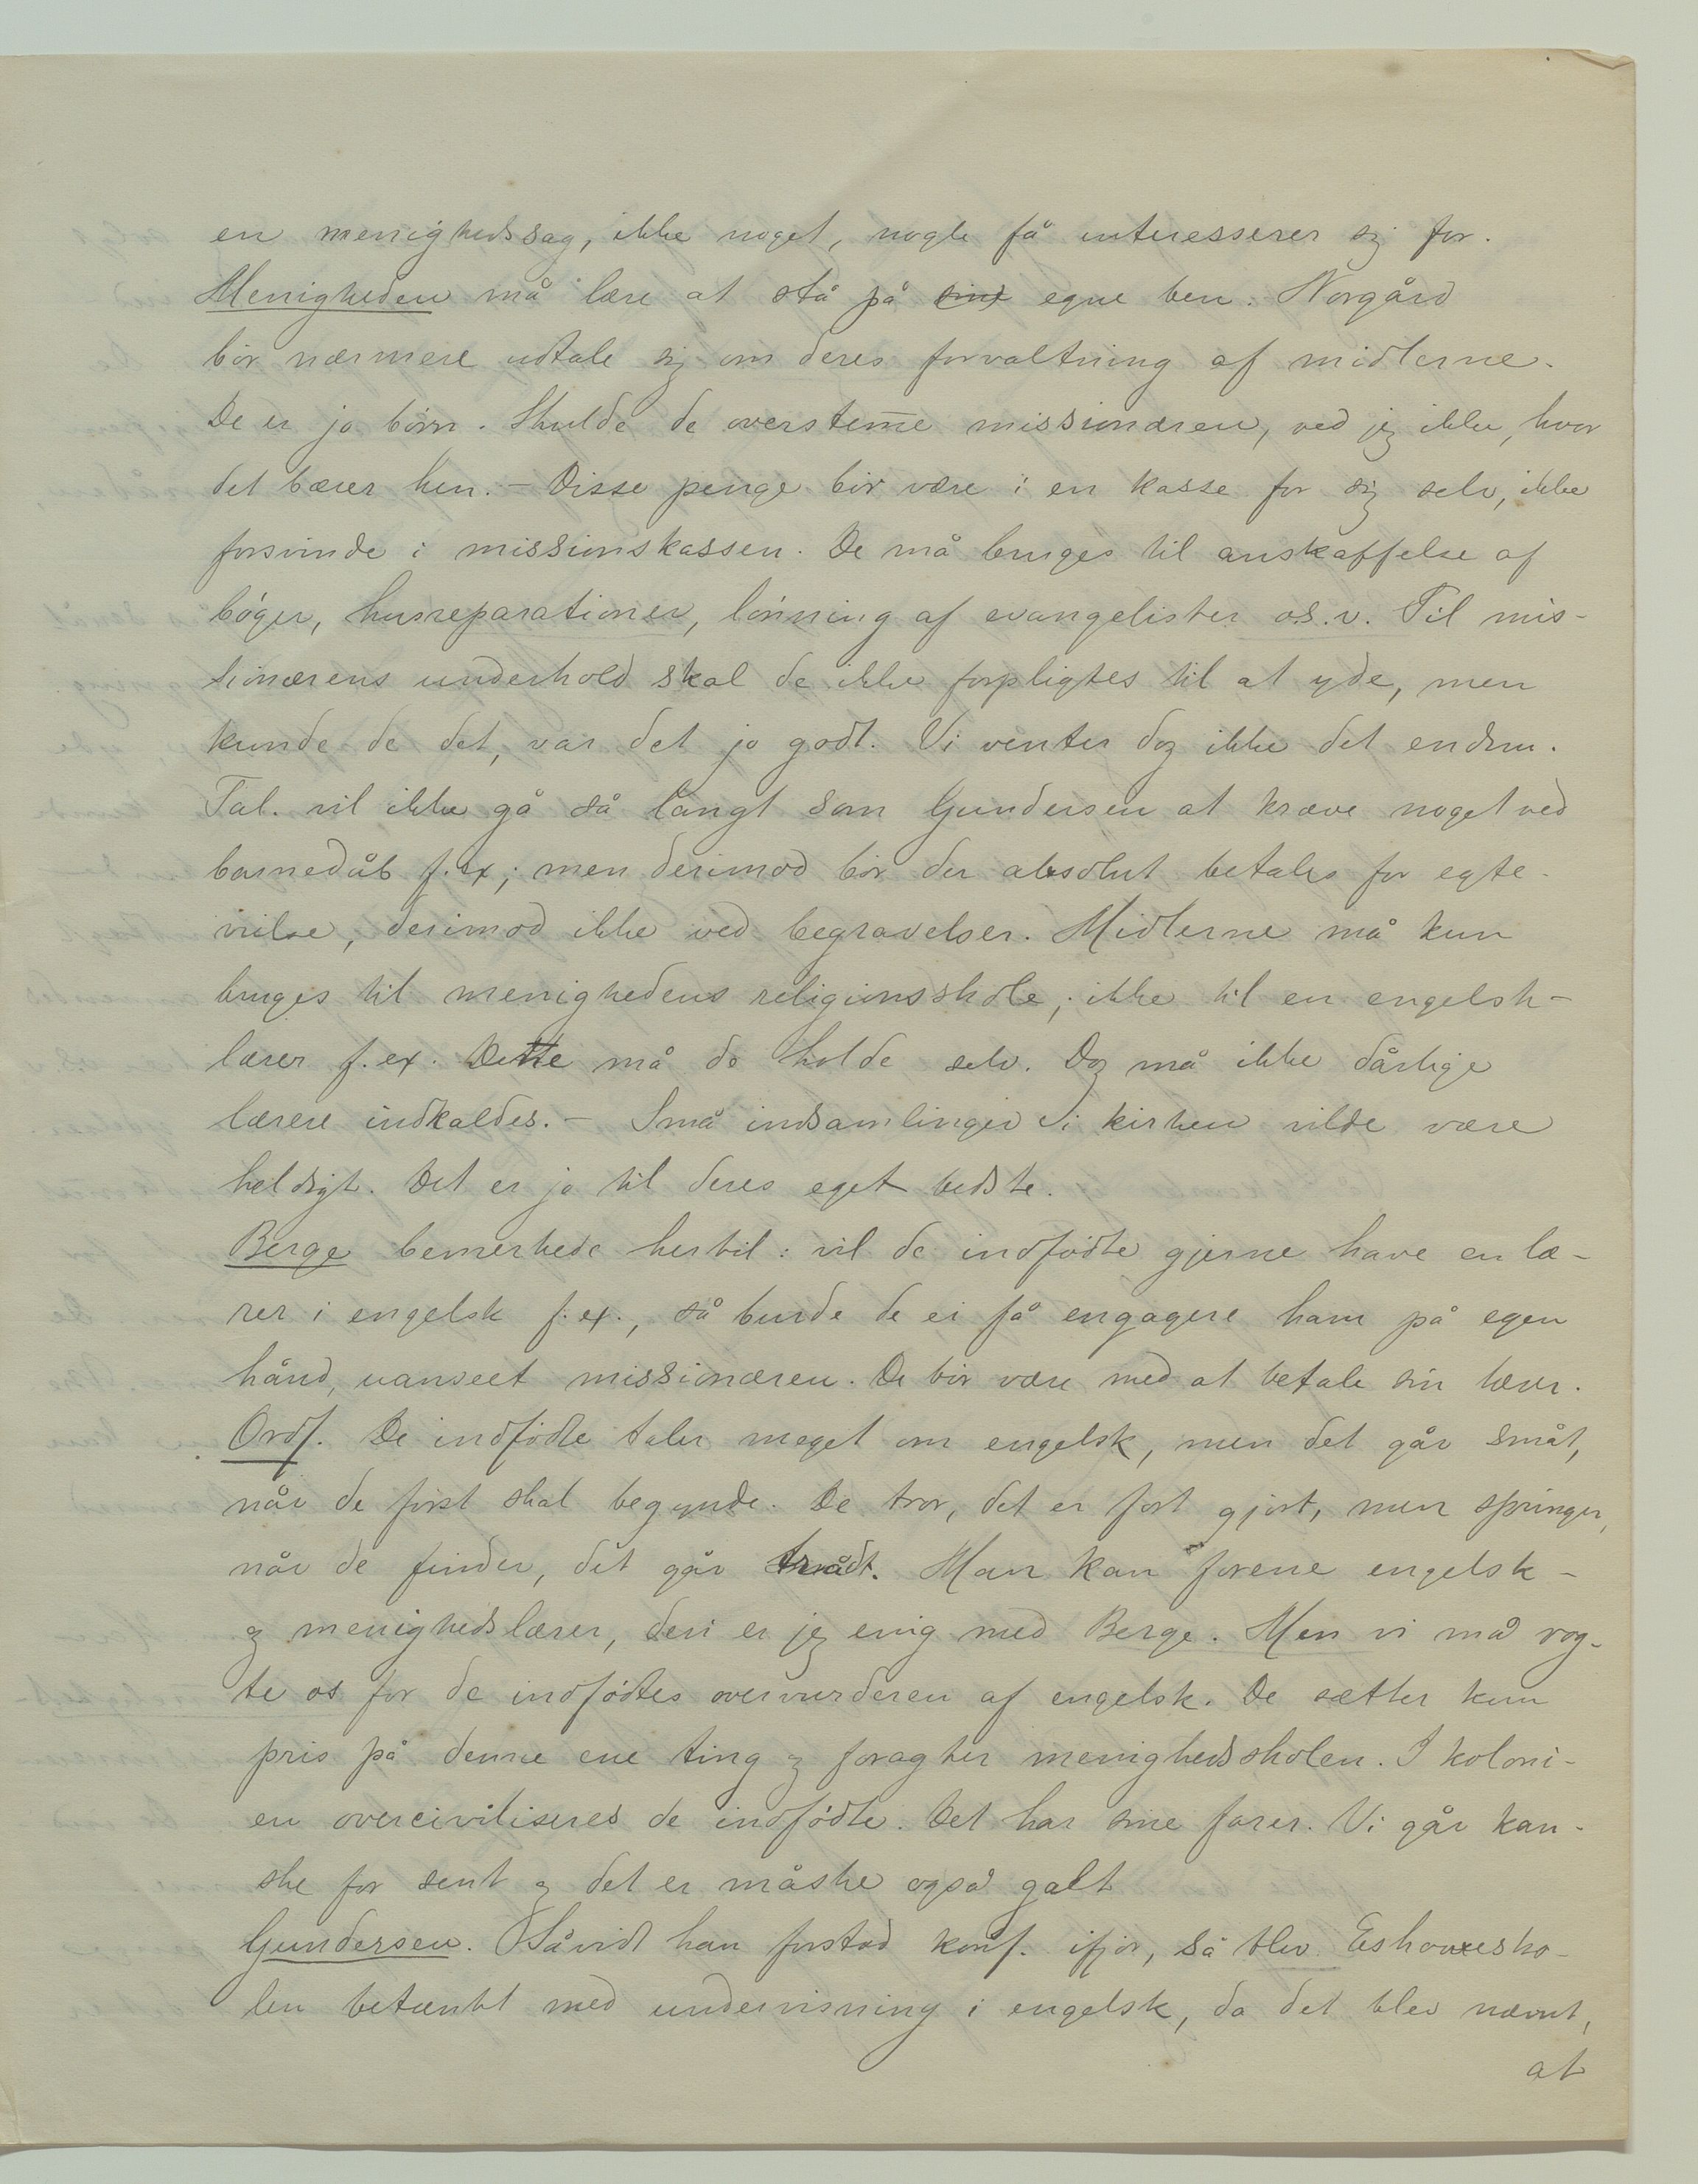 en menighedssag, ikke noget, nogle få interesserer sig for.
Menigheden må lære at stå på sine egne ben. Norgård
bör nærmere udtale sig om deres forvaltning af midlerne.
De er jo börn. Skulde de overstem̅e missionæren, ved jeg ikke, hvor
det bærer hen. – Disse penge bör være i en kasse for sig selv, ikke
forsvinde i missionskassen. De må bruges til anskaffelse af
böger, husreparationer, lönning af evangelister o.s.v. Til mis-
sionærens underhold skal de ikke forpligtes til at yde, men
kunde de det, var det jo godt. Vi venter dog ikke det endnu.
Tal. vil ikke gå så langt som Gundersen at kræve noget ved
barnedåb f.ex; men derimod bör der absolut betales for egte-
vielse, derimod ikke ved begravelser. Midlerne må kun
bruges til menighedens religionsskole, ikke til en engelsk-
lærer f.ex. Dette må de holde selv. Dog må ikke dårlige
lærere indkaldes. – Små indsamlinger i kirken vilde være
heldigt. Det er jo til deres eget bedste.
Berge bemerkede hertil: vil de indfödte gjerne have en læ-
rer i engelsk f.ex., så burde de ei få engagere ham på egen
hånd, uanseet missionæren. De bör være med at betale sin lærer.
Ordf. De indfödte taler meget om engelsk, men det går småt,
når de först skal begynde. De tror, det er fort gjort, men springer,
når de finder, det går trådt. Man kan forene engelsk-
og menighedslærer, deri er jeg enig med Berge. Men vi må vog-
te os for de indfödtes overvurderen af engelsk. De sætter kun
pris på denne ene ting og foragter menighedsskolen. I koloni-
en overciviliseres de indfödte. Det har sine farer. Vi går kan-
ske for sent og det er måske også galt
Gundersen. Såvidt han forstod konf. ifjor, så blev Eshowesko-
len betænkt med undervisning i engelsk, da det blev nævnt,
at